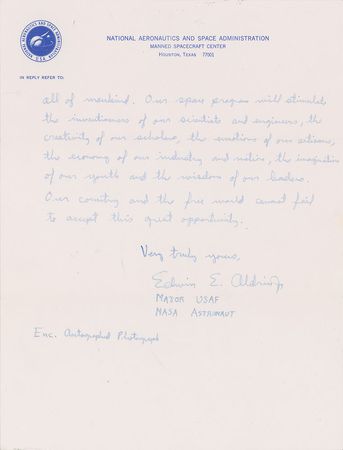 NATIONAL AERONAUTICS AND SPACE ADMINISTRATION
MANNED SPACECRAFT CENTER
HOUSTON, TEXAS 77001
IN REPLY REFER TO:
all of mankind. Our space program will stimulate
the inventiveness of our scientists and engineers, the
creativity of our scholars, the emotions of our citizens,
the economy of our industry and nation, the imagination
of our youth and the wisdom of our leaders.
Our country and the free world cannot fail
to accept this great opportunity.
Very truly yours,
Edwin E. Aldrin Jr
MAJOR USAF
NASA ASTRONAUT
Enc. Autographed Photograph